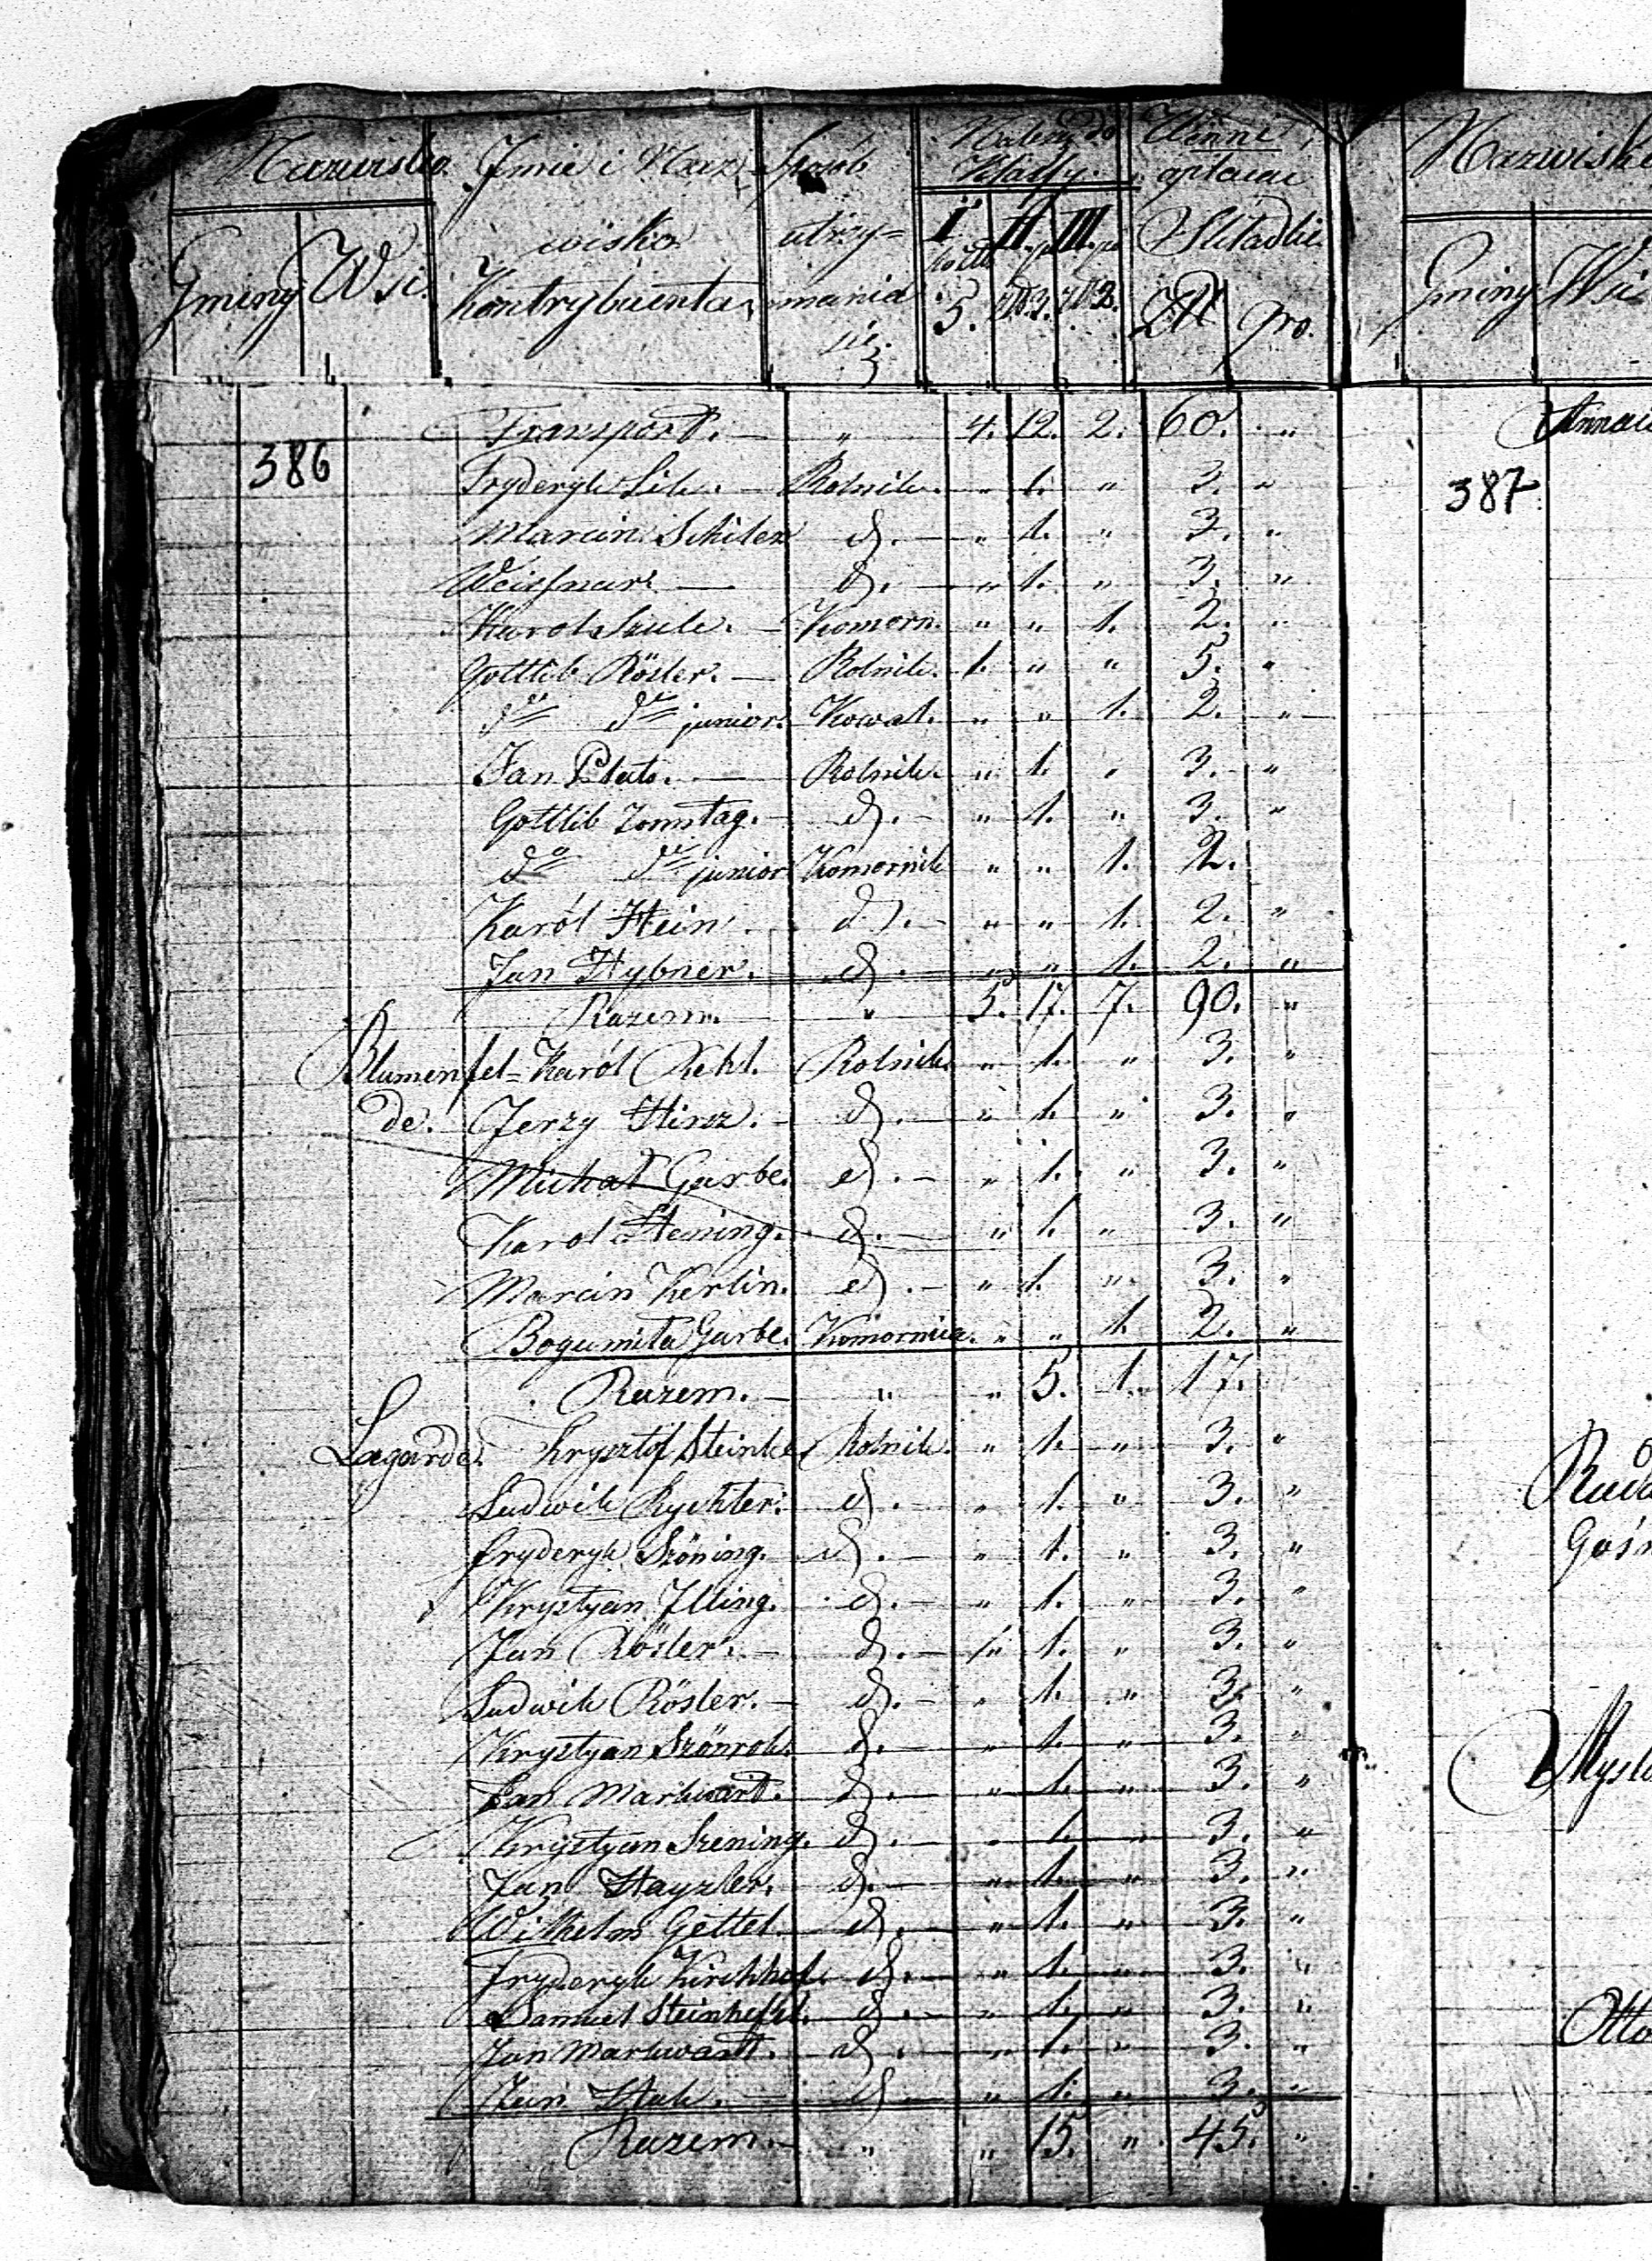 Nazwisko Jmie i Naz= Sposób Należy do Klassy. Winni opłacać Nazwisk
Gminy Wsi. wiska Kontrybuenta utrzy= mania się. I. II. III. Składki Gminy Wsi
5. 3. 2. Zł gro.
Transport. " 4. 12. 2. 60. "
386
Fryderyk Rolnik. " 1. " 3. "
Marcin Schiler d. " 1. " 3. "
d. " 1. " 3. "
Karol Szulc. Komorn. " " 1. 2. "
Gottlib Rösler. Rolnik. 1. " " 5. "
do do junior. Kowal. " " 1. 2. "
Jan Rolnik. " 1. " 3. "
Gottlib Zonntag. d. " 1. " 3. "
do do junior Komornik " " 1. 2.
Karól Hein d. " " 1. 2. "
Jan Hybner. d. " " 1. 2. "
Razem. " 5. 17. 7. 90. "
Blumenfel= Karól Rolnik " 1. " 3. "
de. Jerzy Hirsz. d. " 1. " 3. "
Michał Garbe. d. " 1. " 3. "
Karol Hening. d. " 1. " 3. "
Marcin Kerlin. d. " 1. " 3. "
Bogumiła Garbe. Komornica. " " 1. 2. "
Razem. " " 5. 1. 17.
Lagarde. Krysztof Steinke Rolnik. " 1. " 3. "
Ludwik Rychter. d. " 1. " 3. "
Fryderyk Szöning. d. " 1. " 3. "
Krystyan Illing. d. " 1. " 3. "
Jan Rösler. d. " 1. " 3. "
Ludwik Rösler. d. " 1. " 3. "
Krystyan Szönrok. d. " 1. " 3. "
Jan Markwart. d. " 1. " 3. "
Krystyan Szening. d. " 1. " 3. "
Jan Hayzler. d. " 1. " 3. "
Wilhelm Gettel. d. " 1. " 3. "
Fryderyk Kirchhof. d. " 1. " 3. "
Samuel d. " 1. " 3. "
Jan Markwardt. d. " 1. " 3. "
Jan Hak. d. " 1. " 3. "
Razem. " " 15. " 45. "
387